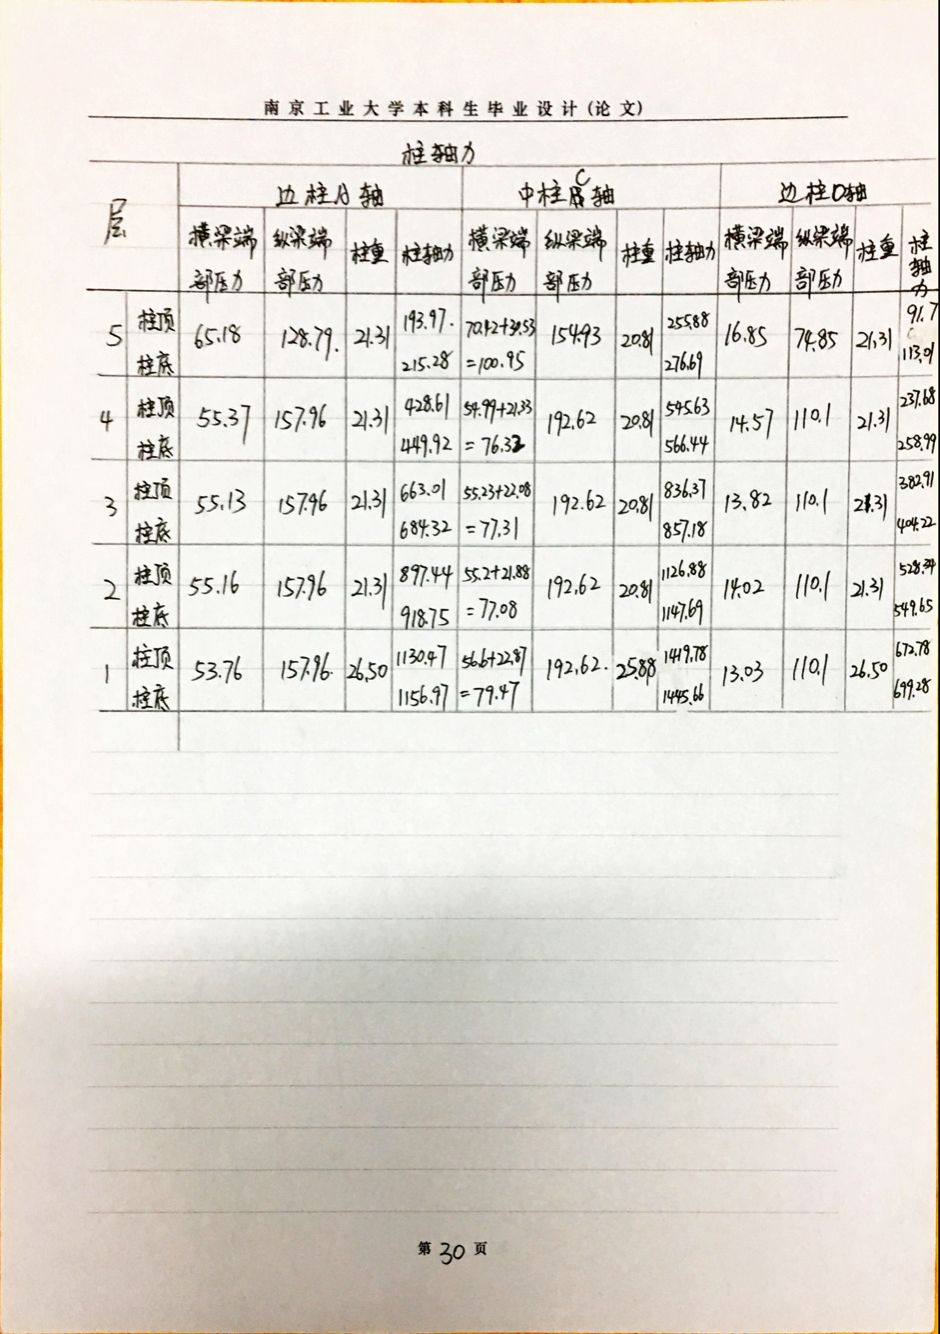 南京工业大学本科生毕业设计(论文)
柱轴力
层 边柱A轴 中柱C轴 边柱D轴
横梁端部压力 纵梁端部压力 柱重 柱轴力 横梁端部压力 纵梁端部压力 柱重 柱轴力 横梁端部压力 纵梁端部压力 柱重 柱轴力
5 柱顶 65.18 128.79. 21.31 193.97. 70.42+30.53 154.93 20.81 255.88 16.85 74.85 21.31 91.7
柱底 215.28 =100.95 276.69 113.01
4 柱顶 55.37 157.96 21.31 428.61 54.99+21.33 192.62 20.81 545.63 14.57 110.1 21.31 237.68
柱底 449.92 =76.32 566.44 258.99
3 柱顶 55.13 157.96 21.31 663.01 55.23+22.08 192.62 20.81 836.37 13.82 110.1 21.31 382.91
柱底 684.32 =77.31 857.18 404.22
2 柱顶 55.16 157.96 21.31 897.44 55.2+21.88 192.62 20.81 1126.88 14.02 110.1 21.31 528.34
柱底 918.75 =77.08 1147.69 549.65
1 柱顶 53.76 157.96. 26.50 1130.47 56.6+22.87 192.62. 25.88 1419.78 13.03 110.1 26.50 672.78
柱底 1156.97 =79.47 1445.66 699.28
第 30 页